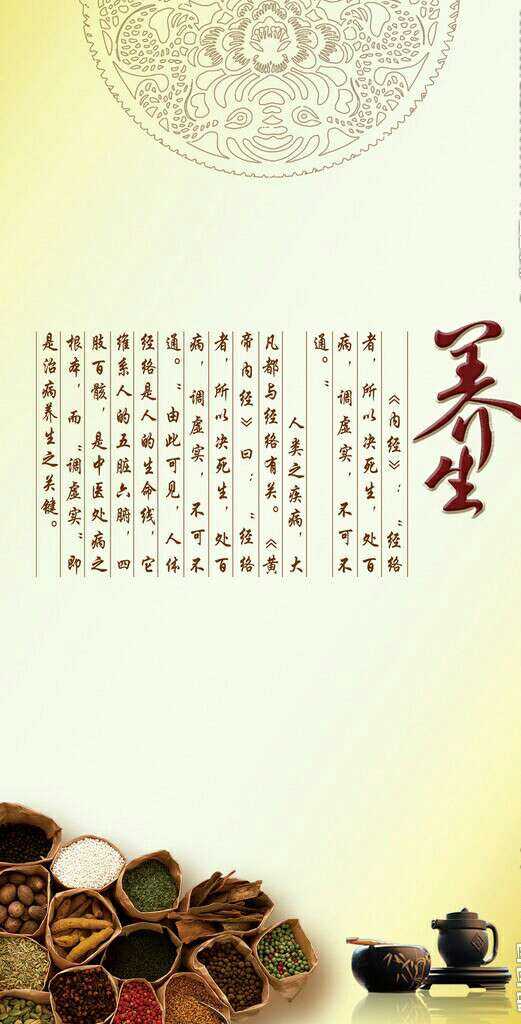 养生
《内经》：“经络
者，所以决死生，处百
病，调虚实，不可不
通。”
人类之疾病，大
凡都与经络有关。《黄
帝内经》曰：“经络
者，所以决死生，处百
病，调虚实，不可不
通。”由此可见，人体
经络是人的生命线，它
维系人的五脏六腑，四
肢百骸，是中医处病之
根本，而“调虚实”即
是治病养生之关键。